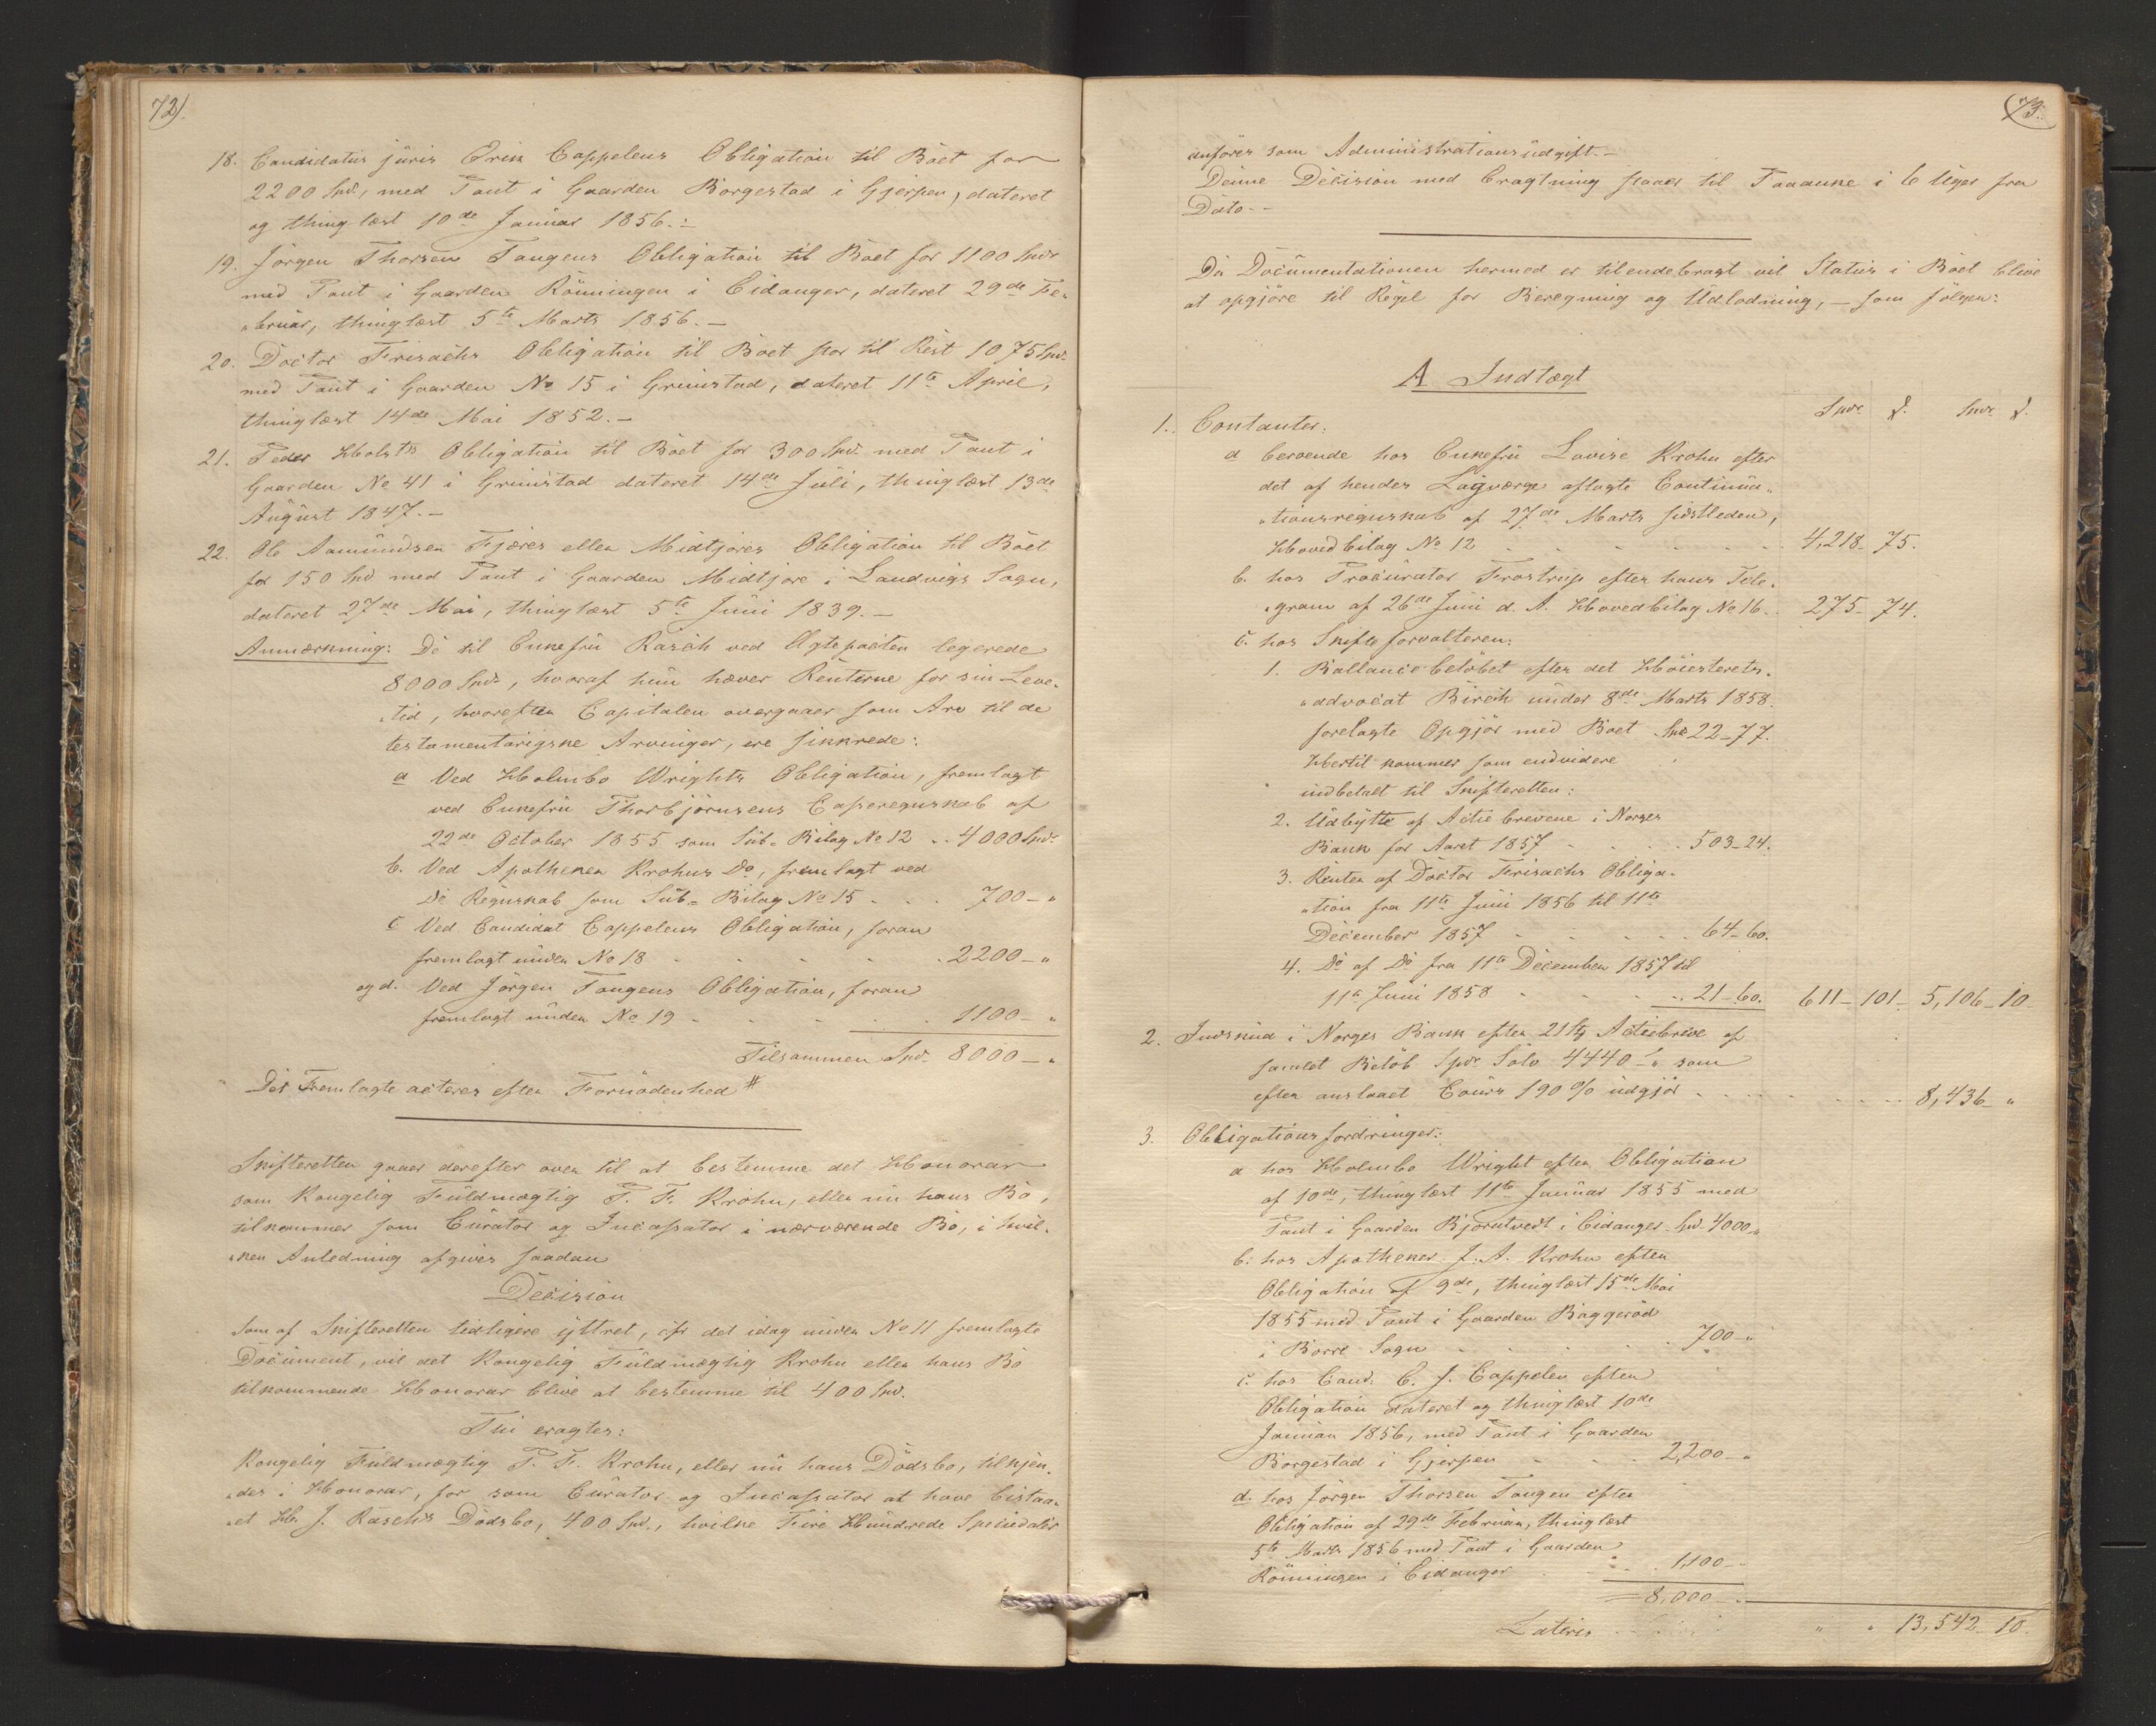 72).
18. Candidatus juris Erik Cappelens Obligation til Boet for
2200 Spd, med Pant i Gaarden Borgestad i Gjerpen, dateret
og thinglæst 10de Januar 1856.-
19. Jörgen Thorsen Tangens Obligation til Boet for 1100 Spdr
med Pant i Gaarden Rönningen i Eidanger, dateret 29de Fe-
"bruar, thinglæst 5te Marts 1856.-
20. Doctor Frisachs Obligation til Boet stor til Rest 1075 Spdr
med Pant i Gaarden No 15 i Grimstad, dateret 11te April,
thinglæst 14de Mai 1852.-
21. Peder Holsts Obligation til Boet for 300 Spd. med Pant i
Gaarden No 41 i Grimstad dateret 14de Juli, thinglæst 13de
August 1847.-
22. Ole Aamundsen Fjæres eller Midtjöres Obligation til Boet
for 150 Spd med Pant i Gaarden Midtjöre i Landvigs Sogn,
dateret 27de Mai, thinglæst 5te Juni 1839.-
Anmærkning: De til Enkefru Rasch ved Egtepacten legerede
8000 Spdr, hvoraf hun hæver Renterne for sin Leve-
"tid, hvorefter Capitalen overgaaer som Arv til de
testamentariske Arvinger, ere sikkrede:
a Ved Holmbo Wrights Obligation, fremlagt
ved Enkefru Thorbjörnsens Casseregnskab af
22de October 1855 som Sub-Bilag No 12 .. 4000 Spdr
b. Ved Apotheker Krohns Do, fremlagt ved
Do Regnskab som Sub-Bilag No 15 . . . 700-"
c Ved Candidat Cappelens Obligation, foran
fremlagt under No 18 . . . . 2200-"
og d. Ved Jörgen Tangens Obligation, foran
fremlagt under No 19 . . . . 1100-"
Tilsammen Spd. 8000-"
Det Fremlagte acteres efter Fornödenhed #
Skifteretten gaaer derefter over til at bestemme det Honorar
som Kongelig Fuldmægtig P. F. Krohn, eller nu hans Bo,
tilkommer som Curator og Incassator i nærværende Bo, i hvil-
"ken Anledning afgives saadan
Decision
Som af Skifteretten tidligere yttret, cfr det idag under No 11 fremlagte
Document, vil det Kongelig Fuldmægtig Krohn eller hans Bo
tilkommende Honorar blive at bestemme til 400 Spd.
Thi eragtes:
Kongelig Fuldmægtig P. F. Krohn, eller nu hans Dödsbo, tilkjen-
"des i Honorar, for som Curator og Incassator at have bistaa-
"et H. J. Raschs Dödsbo, 400 Spd., hvilke Fire Hundrede Speciedaler
(73.
anföres som Administrationsudgift.-
Denne Decision med Eragtning staaer til Paaanke i 6 Uger fra
Dato.-
Da Documentationen hermed er tilendebragt vil Status i Boet blive
at opgjöre til Regel for Beregning og Udlodning, - som fölger:
A Indtægt
Spdr ß. Spdr ß.
1. Contanter:
a beroende hos Enkefru Lovise Krohn efter
det af hendes Laugværge aflagte Continua-
"tionsregnskab af 27de Marts sidstleden,
Hovedbilag No 12 . . . . . 4,218- 75.
b. hos Procurator Frostrup efter hans Tele-
"gram af 26de Juni d. A. Hovedbilag No 16. 275- 74.
c. hos Skifteforvalteren:
1. Ballancebelöbet efter det Höiesterets-
"advocat Birch under 8de Marts 1858
forelagte Opgjör med Boet Spd 22-77.
Hertil kommer som endvidere
indbetalt til Skifteretten:
2. Udbytte af Actiebrevene i Norges
Bank for Aaret 1857 . . . . 503-24.
3. Renter af Doctor Frisachs Obliga-
"tion fra 11te Juni 1856 til 11te
December 1857 . . . . 64-60.
4. Do af Do fra 11te December 1857 til
11te Juni 1858 . . . . 21-60. 611- 101- 5,106- 10
2. Indskud i Norges Bank efter 21 Actiebreve af
samlet Belöb Spdr Sölv 4440-" som
efter anslaaet Cours 190 % udgjör . . . . . 8,436- "
3. Obligationsfordringer:
a hos Holmbo Wright efter Obligation
af 10de, thinglæst 11te Januar 1855 med
Pant i Gaarden Bjorntvedt i Eidanger Spd. 4000-"
b: hos Apotheker J. A. Krohn efter
Obligation af 9de, thinglæst 15de Mai
1855 med Pant i Gaarden Baggeröd
i Borre Sogn . . . . . 700-"
c. hos Cand. E. J. Cappelen efter
Obligation dateret og thinglæst 10de
Januar 1856, med Pant i Gaarden
Borgestad i Gjerpen . . . 2,200-"
d. hos Jörgen Thorsen Tangen efter
Obligation af 29de Februar, thinglæst
5te Marts 1856 med Pant i Gaarden
Rönningen i Eidanger . . . 1,100-
= 8,000-
Lateris . . . . " " 13,542- 10